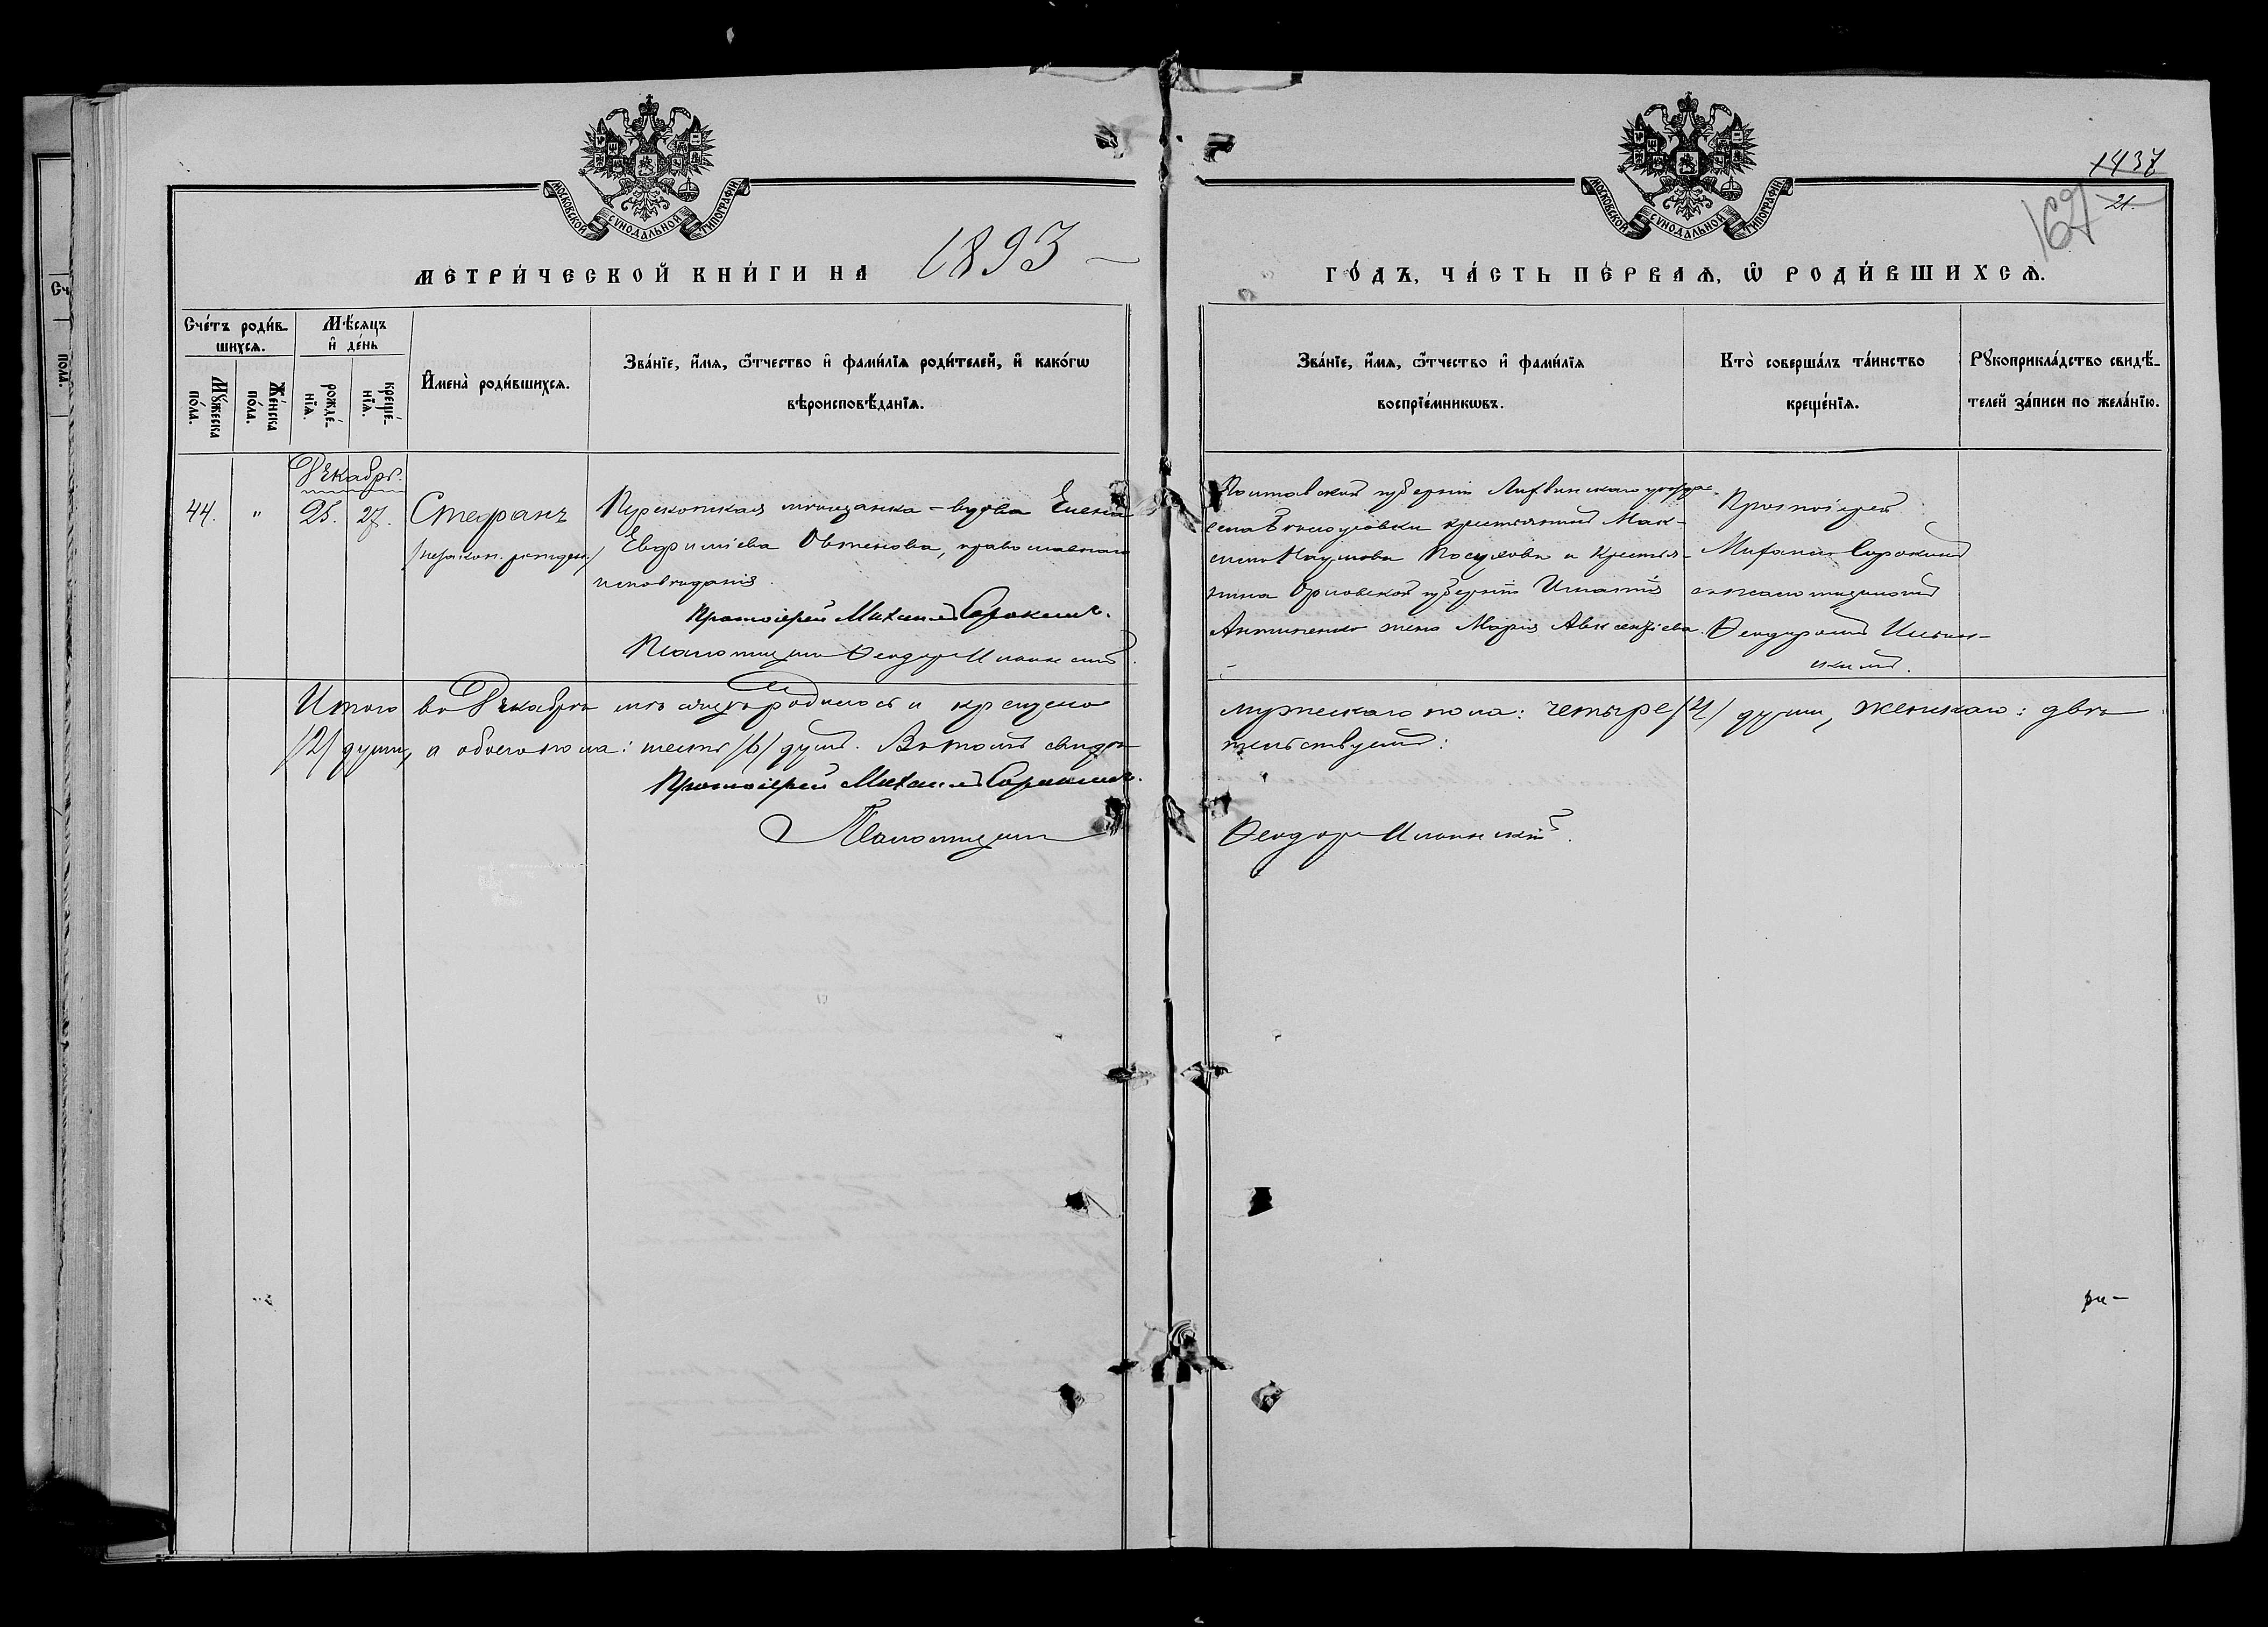 МОСКОВСКОЙ СѴНОДАЛЬНОЙ ТИПОГРАФІИ
МОСКОВСКОЙ СѴНОДАЛЬНОЙ ТИПОГРАФІИ
1437
21.
167
МЕТРИ́ЧЕСКОЙ КНИ́ГИ НА 1893
ГО́ДЪ, ЧА́СТЬ ПЕ́РВАѦ, Ѿ РОДИ́ВШИХСѦ.
Сч
пола.
Сче́тъ роди́в-
шихсѧ.
Мꙋжеска
по́ла.
Же́нска
по́ла.
Мѣ́сѧцъ
и҆ де́нь
рожде́-
нїѧ.
креще́-
нїѧ.
И҆мена̀ роди́вшихсѧ.
Зва́нїе, и҆́мѧ, ѻ҆́тчество и҆ фами́лїѧ роди́телей, и҆ како́гѡ
вѣроисповѣ́данїѧ.
Зва́нїе, и҆́мѧ, ѻ҆́тчество и҆ фами́лїѧ
воспрїе́мникѡвъ.
Кто̀ соверша́лъ та́инство
креще́нїѧ.
Рꙋкоприкла́дство свидѣ́-
телей за́писи по жела́нїю.
Декабрь.
44. " 25. 27. Стефанъ
/незакон. рожден./
Перекопская мѣщанка - вдова Елена
Евфиміева Овтенова, православнаго
исповѣданія.
Протоіерей Михаилъ Сорокинъ.
Псаломщикъ Ѳеодоръ Ильинскій.
Полтавской губерніи
села крестьянинъ Мак-
симъ Наумовъ и крестья-
нина Орловской губерніи Игнатія
жена Марія Авксентіева.
Протоіерей
Михаилъ Сорокинъ
съ псаломщикомъ
Ѳеодоромъ Ильин-
скимъ.
Итого въ Декабрѣ мѣсяцѣ родилось и крещено
мужескаго пола: четыре /4/ души, женскаго: двѣ
/2/ души, а обоего пола: шесть /6/ душъ. Въ томъ свидѣ-
тельствуемъ:
Протоіерей Михаилъ Сорокинъ.
Псаломщикъ Ѳеодоръ Ильинскій.